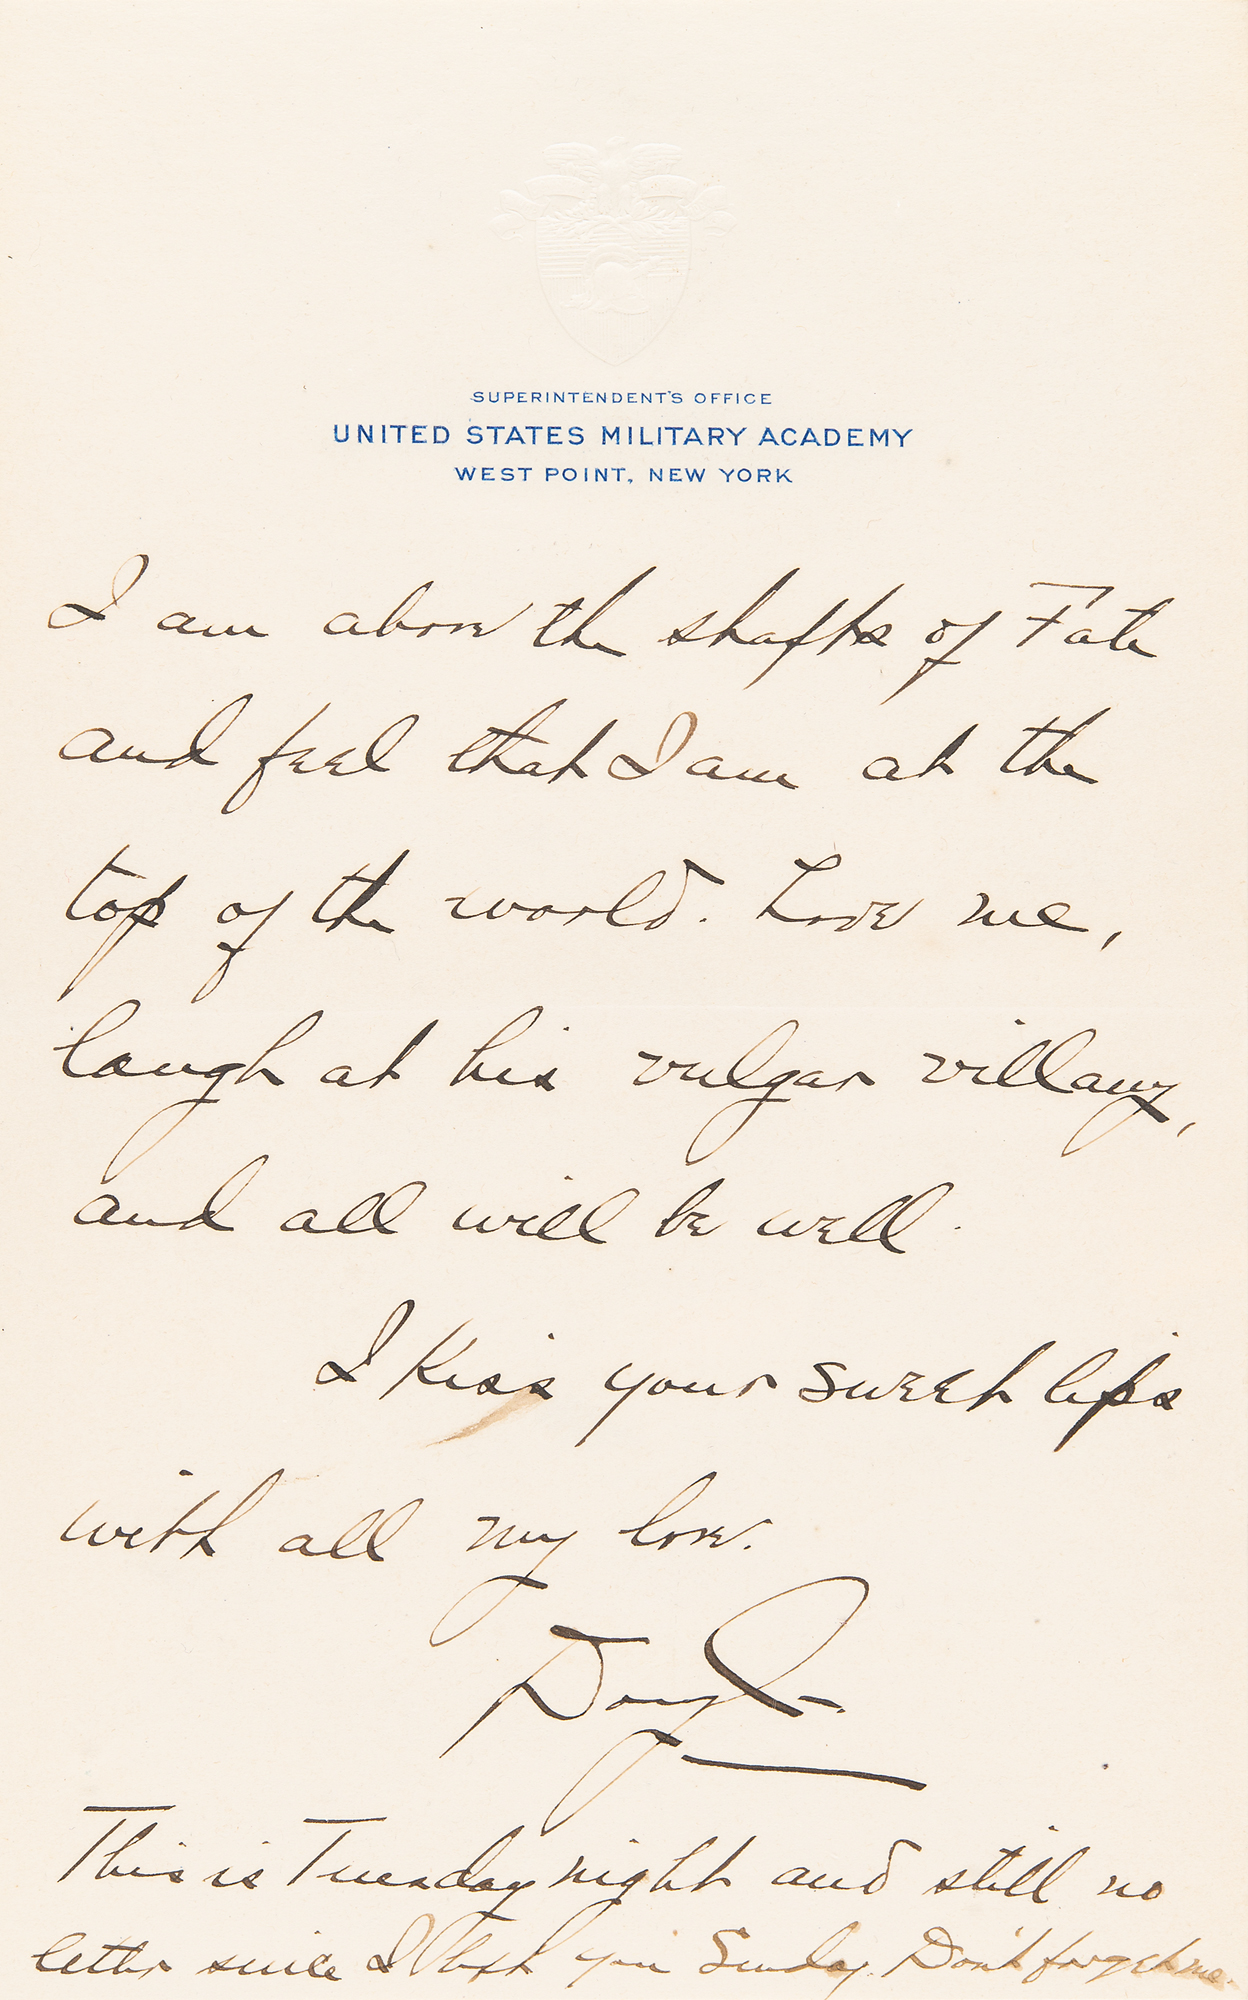 SUPERINTENDENT'S OFFICE
UNITED STATES MILITARY ACADEMY
WEST POINT, NEW YORK
I am above the shafts of Fate
and feel that I am at the
top of the world. Love me,
laugh at his vulgar villany,
and all will be well.
I kiss your sweet lips
with all my love.
Douglas
This is Tuesday night and still no
letter since I left you Sunday. Don't forget me.